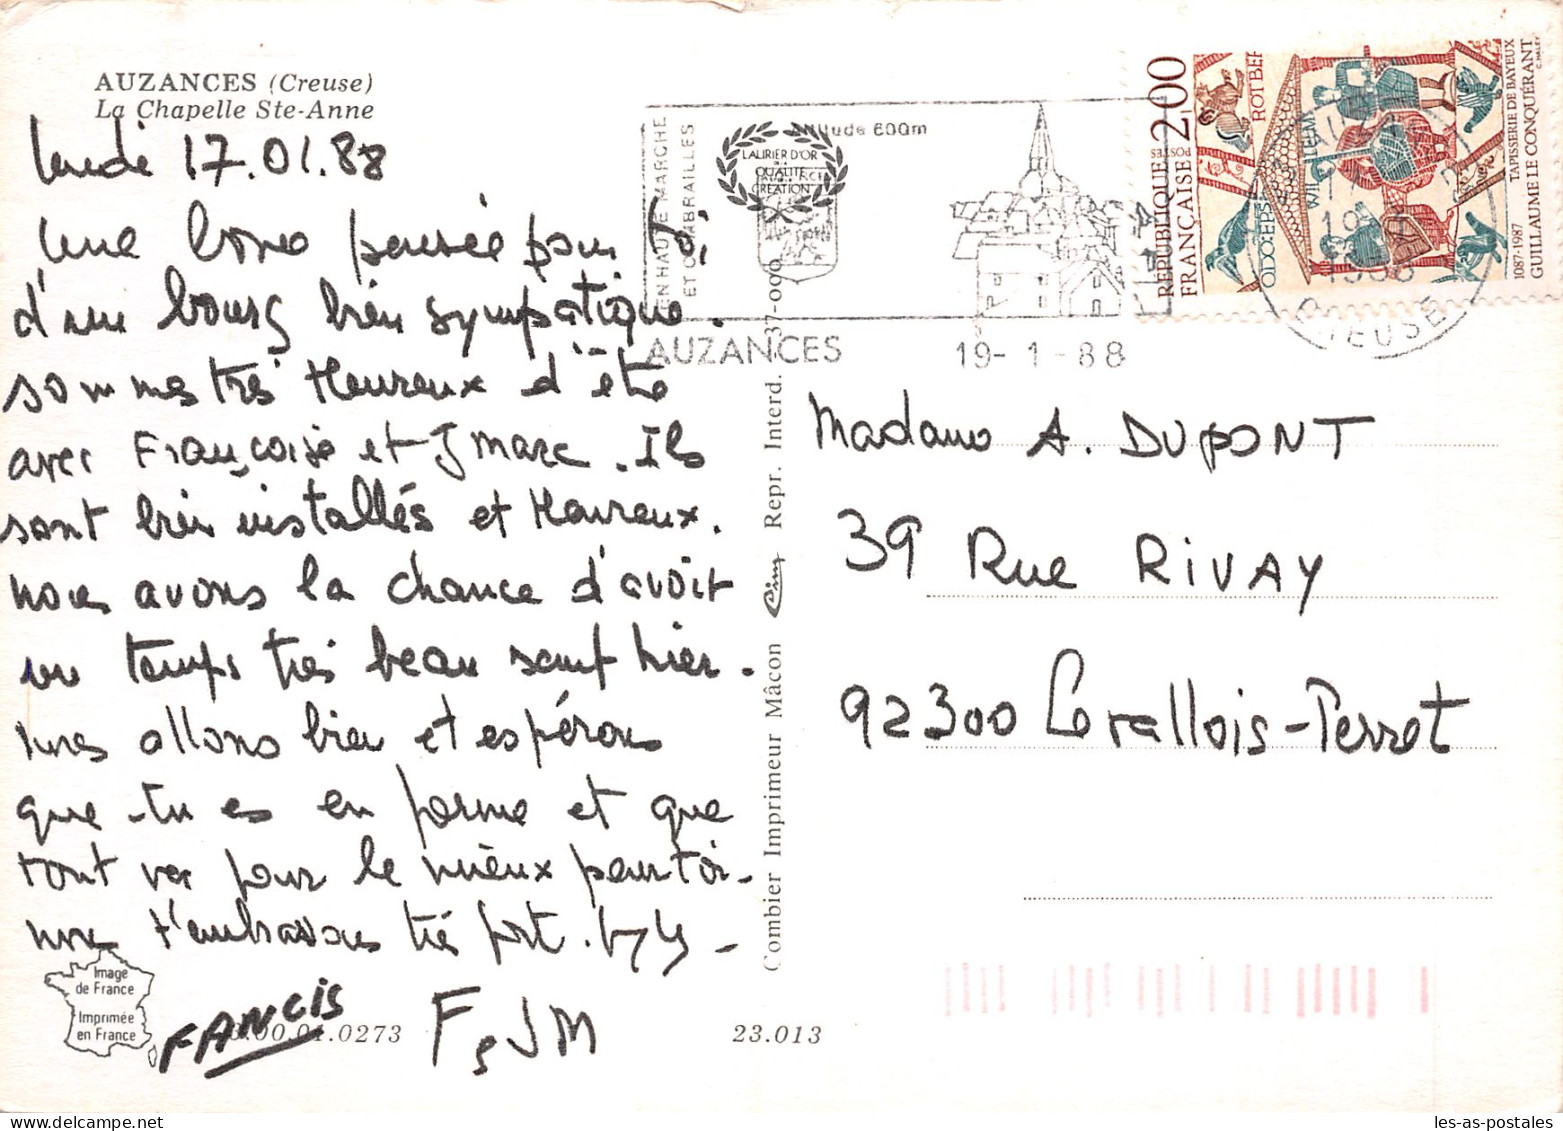 AUZANCES (Creuse)
La Chapelle Ste-Anne
lundi 17.01.88
Une bonne pensée pour toi
d'un bourg bien sympatique.
sommes très Heureux d'être
avec Françoise et J Marc. Ils
sont bien installés et Heureux.
nous avons la chance d'avoir
un temps très beau sauf hier.
nous allons bien et espérons
que tu es en forme et que
tout va pour le mieux pour toi.
nous t'embrassons très fort.
FANCIS
F JM
Image
de France
Imprimée
en France
01.0273
23.013
Combier Imprimeur Mâcon Cim Repr. Interd. 37-000
EN HAUTE MARCHE
ET COMBRAILLES
Altitude 600m
LAURIER D'OR
QUALITÉ
CRÉATION
AUZANCES
19-1-88
RÉPUBLIQUE
FRANÇAISE
2,00
POSTES
ROTBER
WILLELM
ODO:EPS
1087-1987
GUILLAUME LE CONQUÉRANT
TAPISSERIE DE BAYEUX
19-1
1988
CREUSE
Madame A. DUPONT
39 Rue RIVAY
92300 Levallois-Perret
les-as-postales